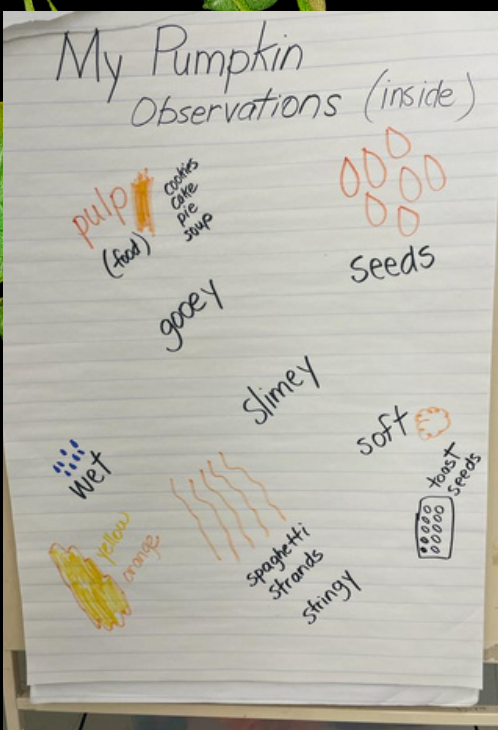 My Pumpkin
Observations (inside)
pulp
(food)
cookies
cake
pie
soup
seeds
gooey
slimey
soft
wet
toast
seeds
yellow
orange
spaghetti
strands
stringy